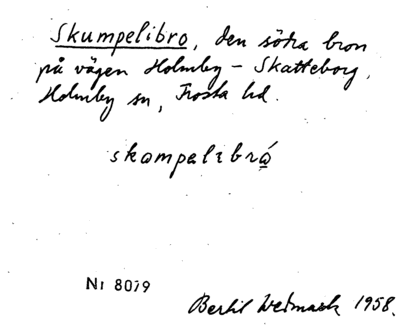 Skumpelibro, den södra bron
på vägen Holmby – Skatteborg,
Holmby sn, Frosta hd.
skompəlɪbrá
Nr 8079
Bertil Wedmark 1958.